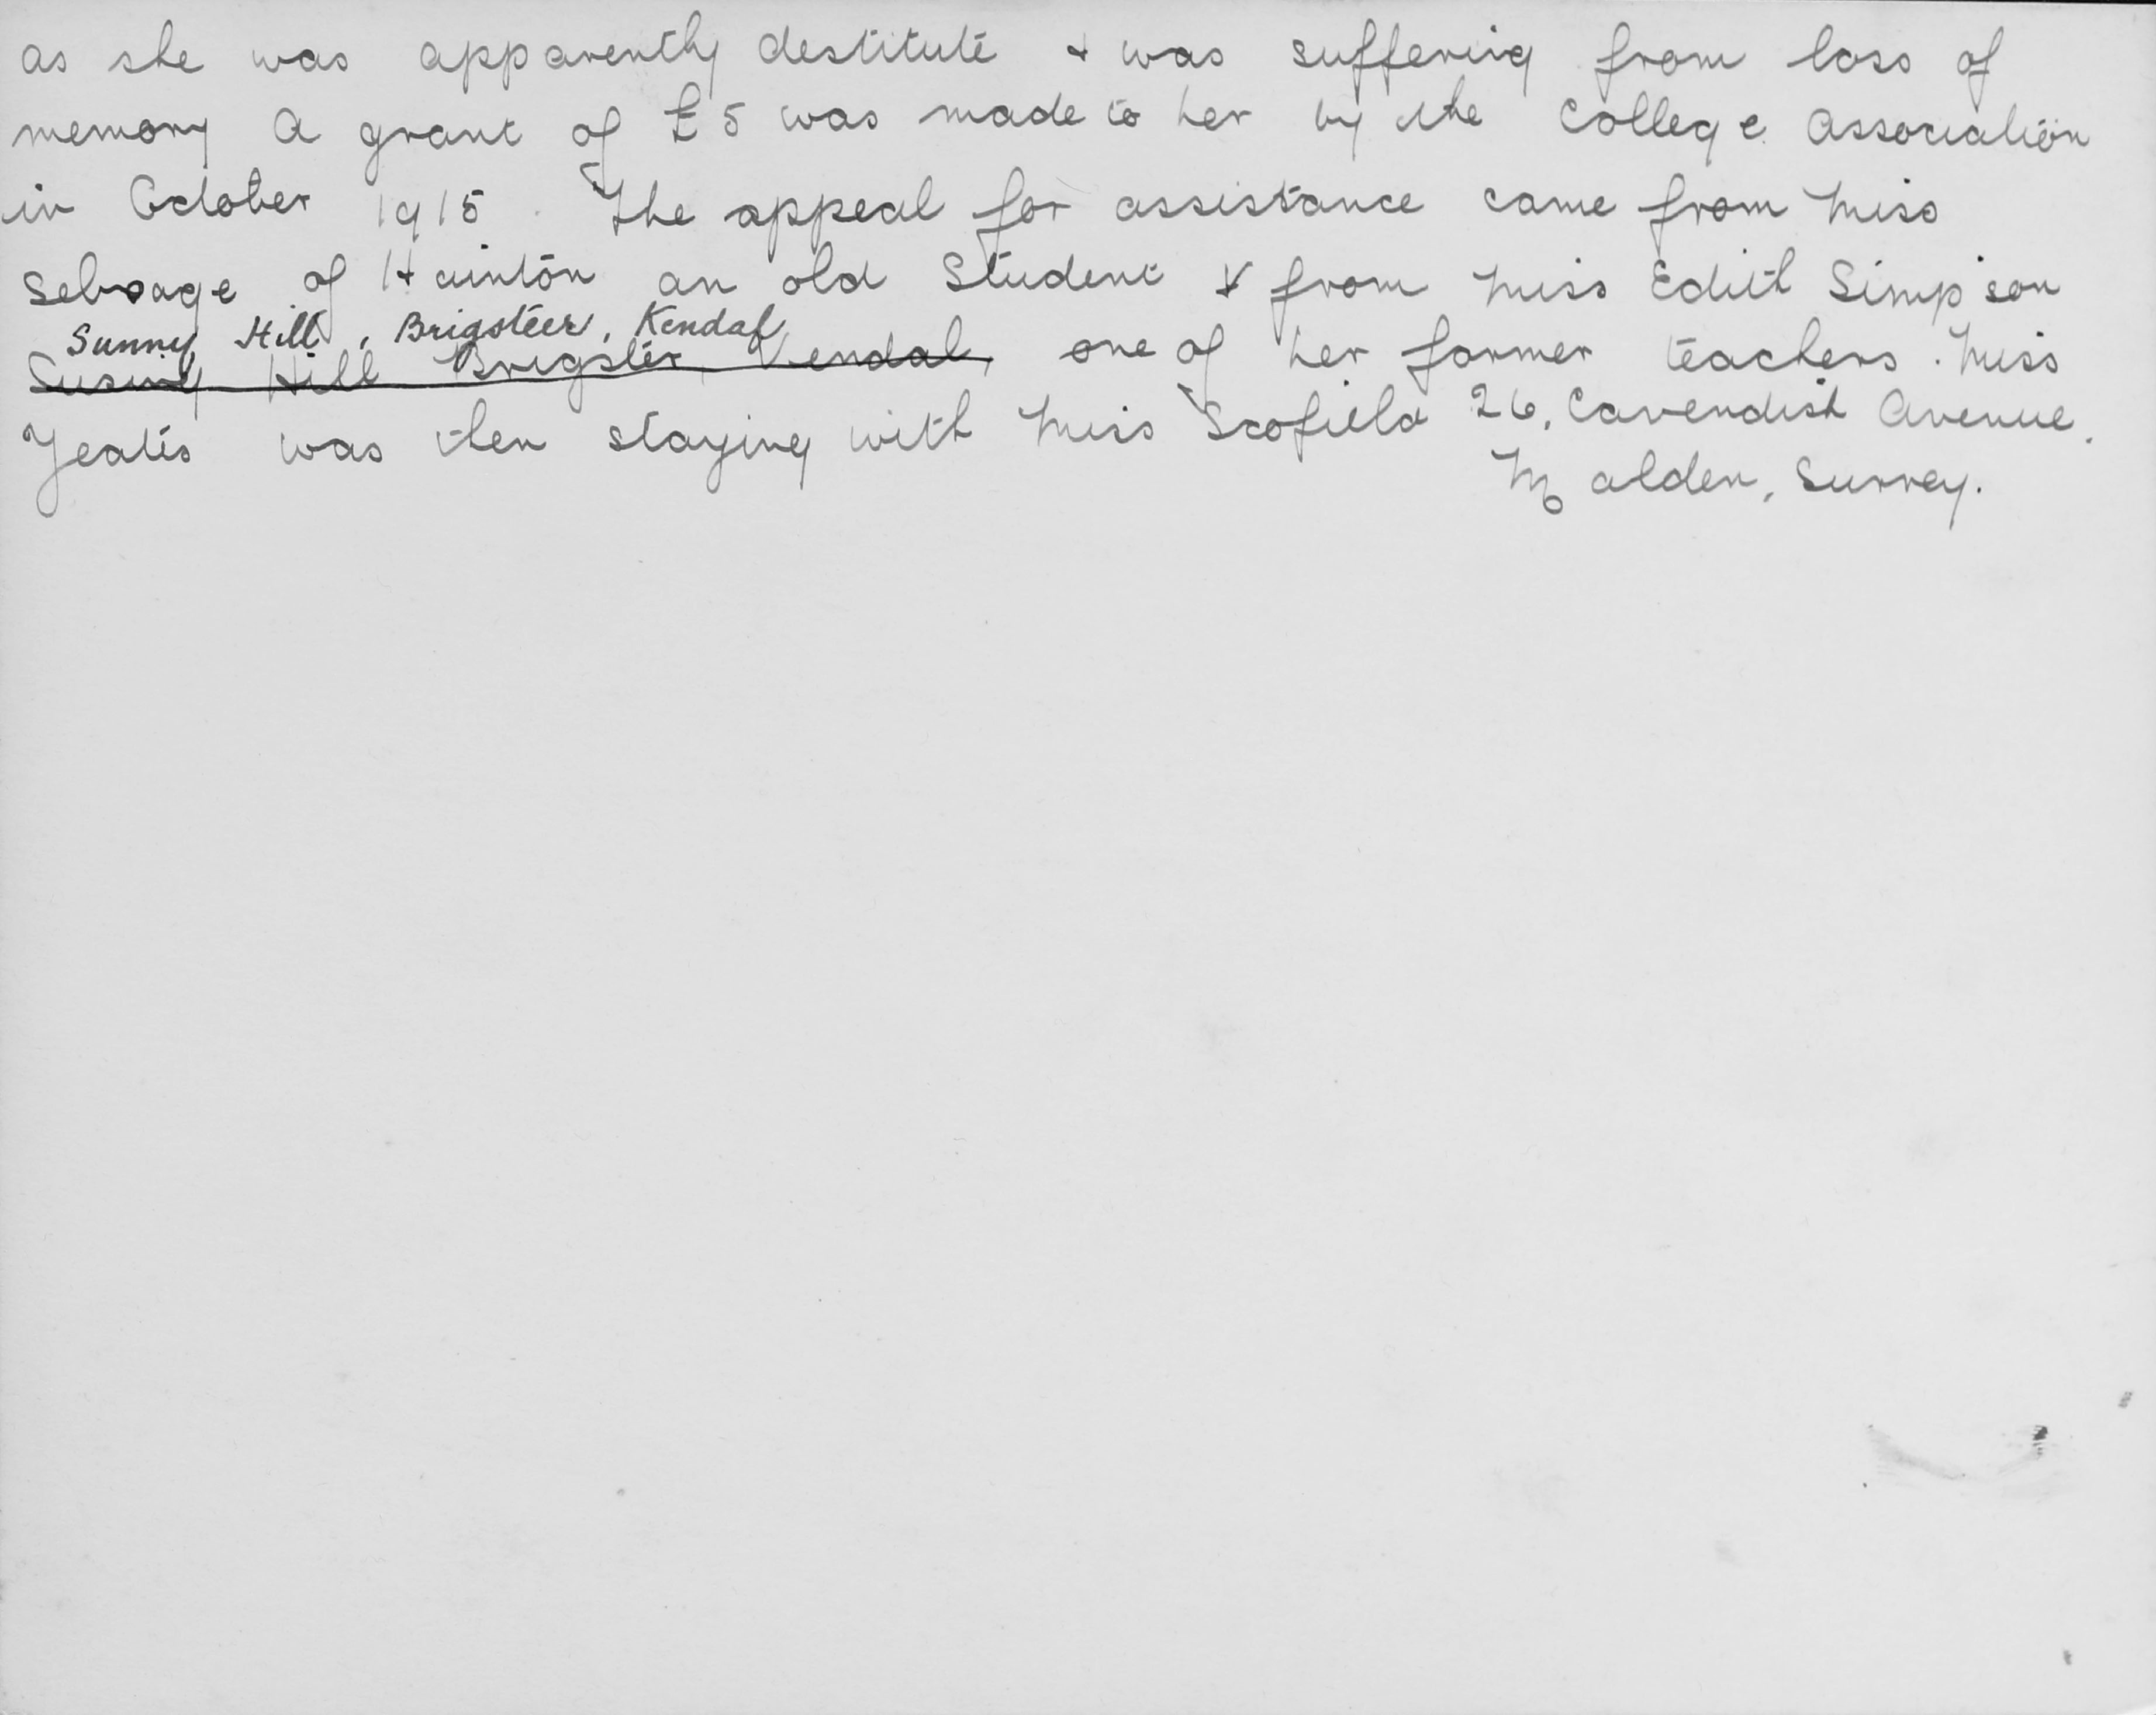 as she was apparently destitute & was suffering from loss of
memory A grant of £5 was made to her by the College Association
in October 1915. The appeal for assistance came from Miss
of Hainton an old Student & from Miss Edith Simpson
Sunny Hill, Brigsteer, Kendal
Susiny Hill Brigster, Kendal, one of her former teachers. Miss
Yeates was then staying with Miss Scofield 26, Cavendish Avenue.
Malden, Surrey.